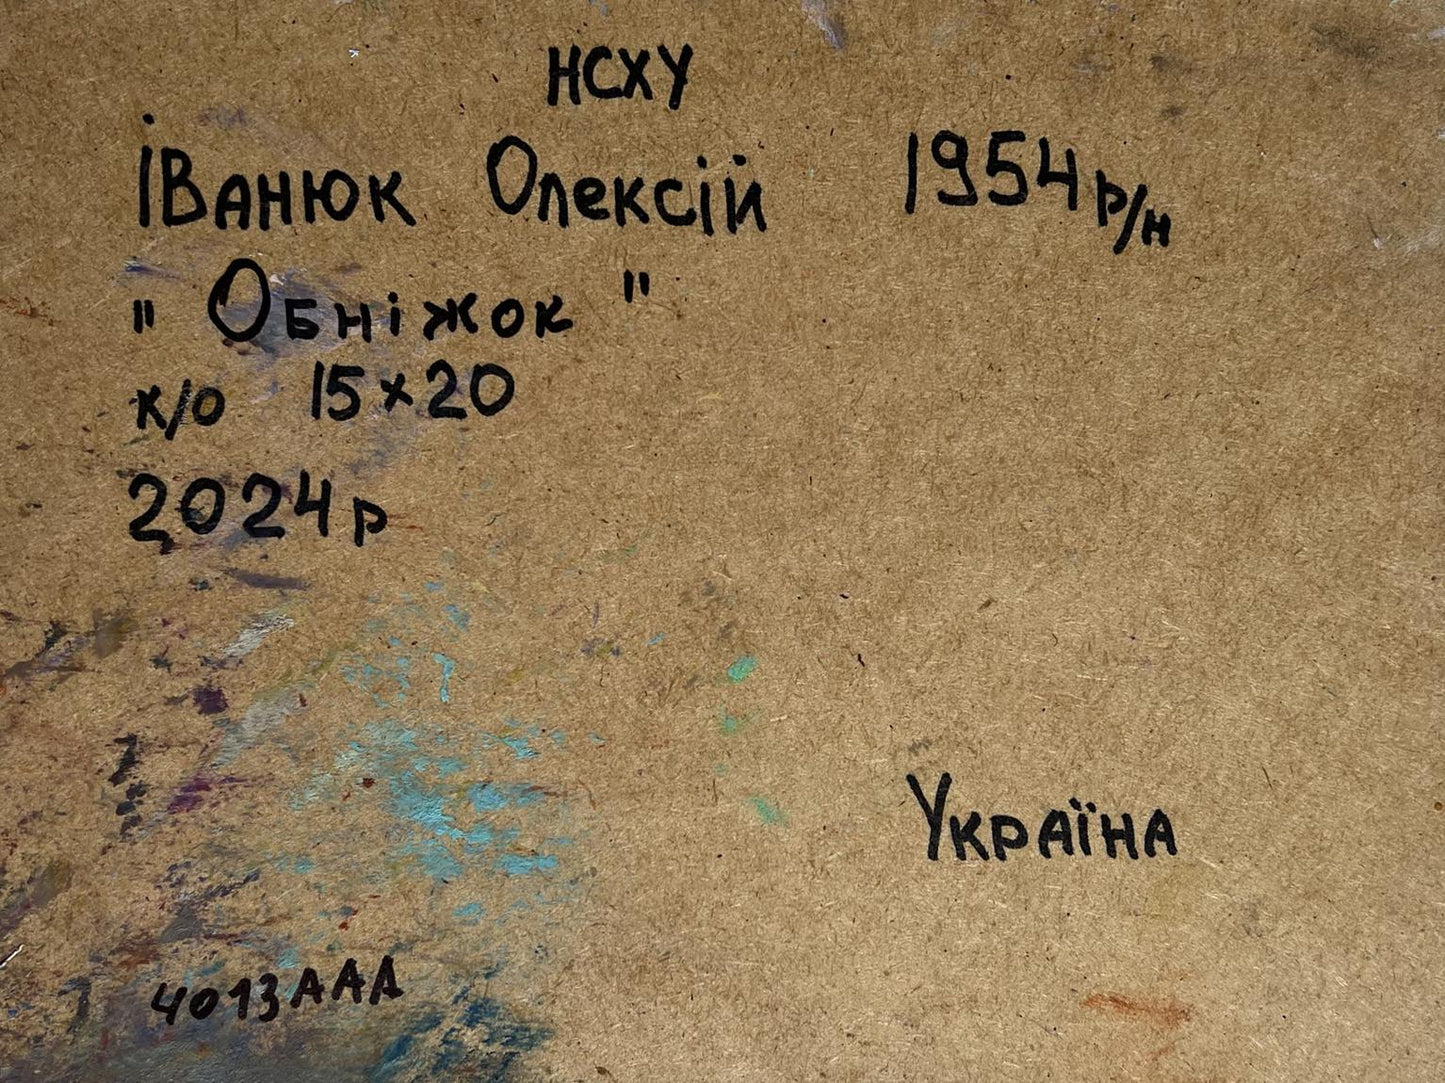 НСХУ
Іванюк Олексій 1954 р/н
" Обніжок "
к/о 15×20
2024 р
Україна
4013ААД